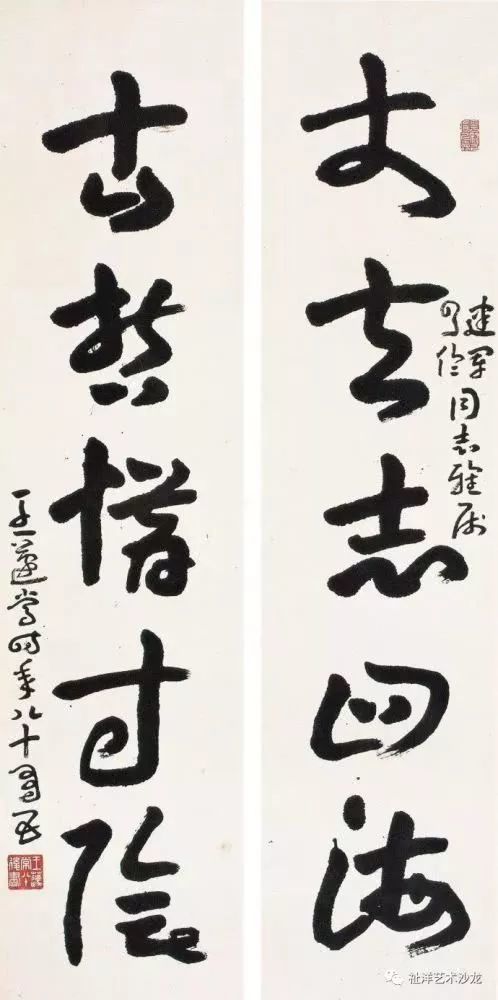 丈夫志四海
建军
同志雅属
古哲惜寸陰
王蘧常时年八十
祉洋艺术沙龙